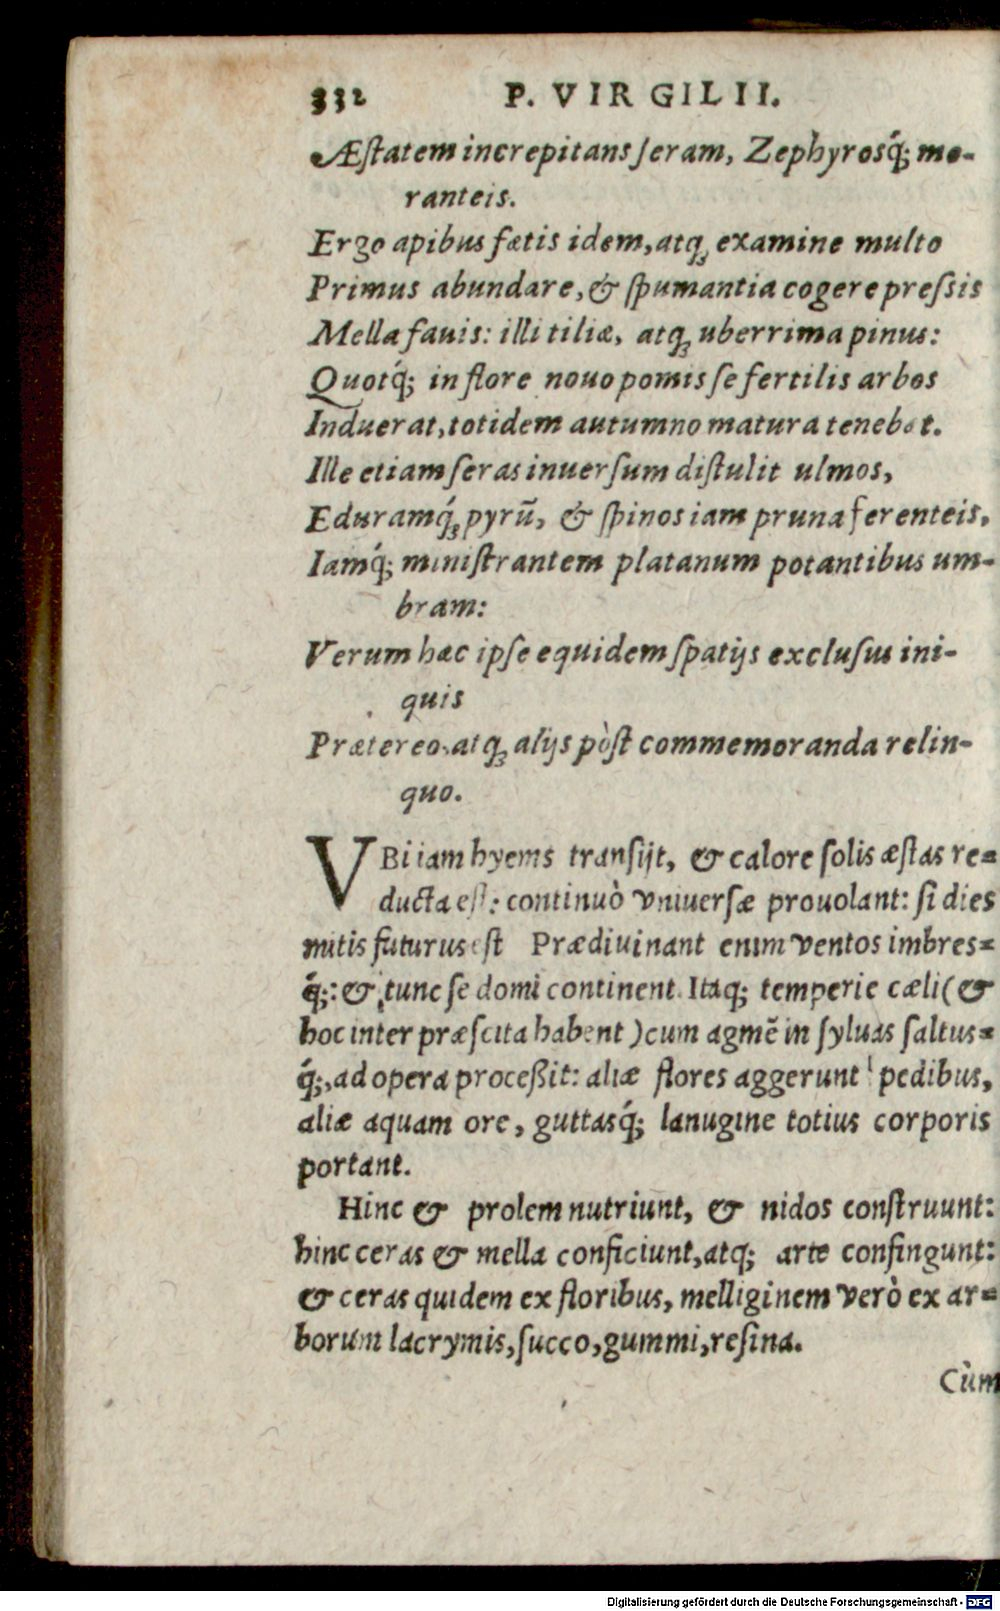 332 P. VIRGILII.
Æſtatem increpitans ſeram, Zephyrosq́; mo-
ranteis.
Ergo apibus fœtis idem, atq; examine multo
Primus abundare, & ſpumantia cogere preſsis
Mella fauis: illi tiliæ, atq; uberrima pinus:
Quotq́; in flore nouo pomis ſe fertilis arbos
Induerat, totidem autumno matura tenebat.
Ille etiam ſeras in uerſum diſtulit ulmos,
Eduramq́; pyrū, & ſpinos iam pruna ferenteis,
Iamq́; miniſtrantem platanum potantibus um-
bram:
Verum hæc ipſe equidem ſpatijs excluſus ini-
quis
Prætereo, atq; alijs pòſt commemoranda relin-
quo.
VBi iam hyems tranſijt, & calore ſolis æſtas re-
ducta eſt: continuò vniuerſæ prouolant: ſi dies
mitis futurus eſt Prædiuinant enim ventos imbres-
q́;: & tunc ſe domi continent. Itaq; temperie cæli (&
hoc inter præſcita habent) cum agmē in ſyluas ſaltus-
q́;, ad opera proceßit: aliæ flores aggerunt pedibus,
aliæ aquam ore, guttasq́; lanugine totius corporis
portant.
Hinc & prolem nutriunt, & nidos conſtruunt:
hinc ceras & mella conficiunt, atq; arte confingunt:
& ceras quidem ex floribus, melliginem verò ex ar-
borum lacrymis, ſucco, gummi, reſina.
Cùm
Digitalisierung gefördert durch die Deutsche Forschungsgemeinschaft - DFG